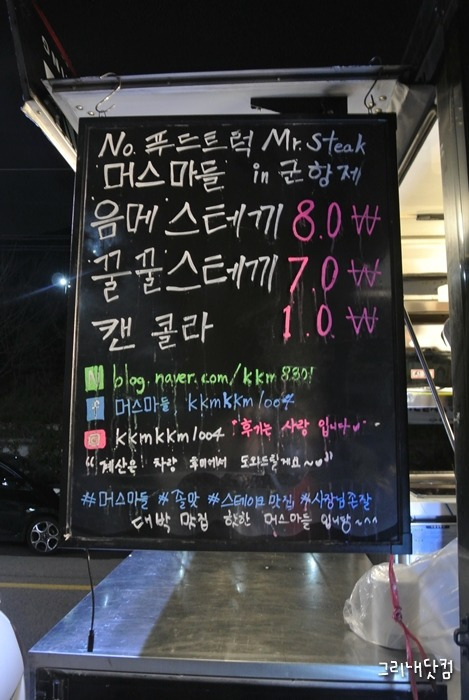 No. 푸드트럭 Mr. Steak
머스마들 in 군항제
음메 스테끼 8.0 ₩
꿀꿀 스테끼 7.0 ₩
캔 콜라 1.0 ₩
N blog.naver.com/kkm8301
f 머스마들, kkmkkm1004
kkmkkm1004 "후기는 사랑 입니다♥"
"계산은 차량 후미에서 도와드릴게요~♥"
#머스마들 #졸맛 #스테이크맛집 #사장님존잘
대박 맛집 핫한 머스마들 입니당~^^
그리내닷컴